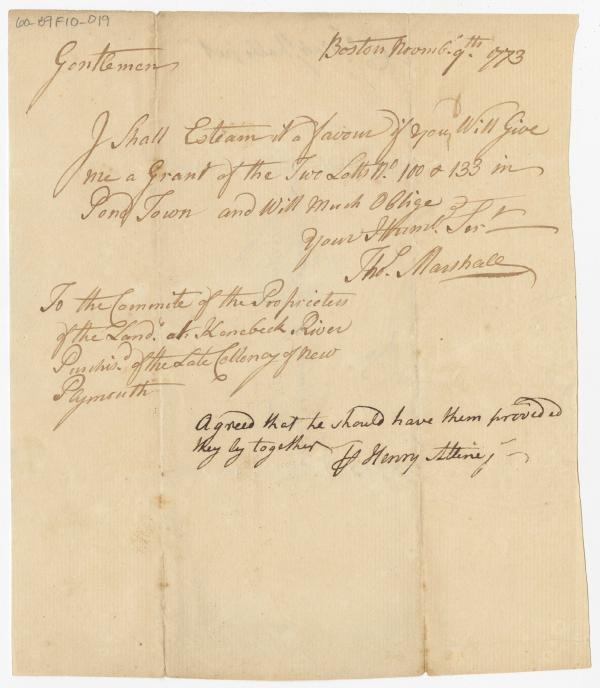 60-B9F10-019
Boston Novmbr. 9th. 1773
Gentlemen
I Shall Esteam it a favour if you Will Give
me a Grant of the Two Lotts No. 100 & 133 in
Pond Town and Will Much Oblige
Your Humbl. Sert
Thos. Marshall
To the Commite of the Proprieters
of the Land. at Kenebeck River
Purchisd. of the Late Colleney of New
Plymouth
Agreed that he should have them provided
they ly together Henry